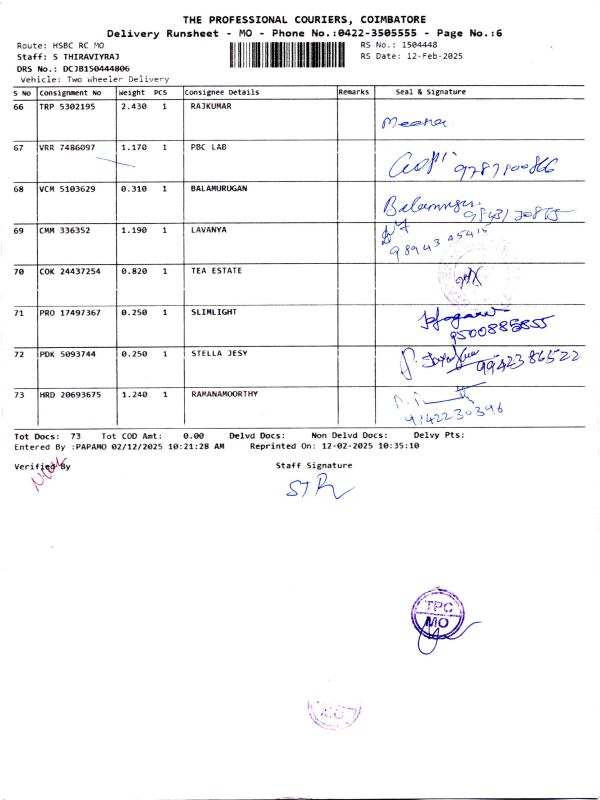 THE PROFESSIONAL COURIERS, COIMBATORE
Delivery Runsheet - MO - Phone No.:0422-3505555 - Page No.:6
Route: HSBC RC MO
RS No.: 1504448
Staff: S THIRAVIYRAJ
RS Date: 12-Feb-2025
DRS No.: DCJB150444806
Vehicle: Two Wheeler Delivery
S No Consignment No Weight PCS Consignee Details Remarks Seal & Signature
66 TRP 5302195 2.430 1 RAJKUMAR
Meena
67 VRR 7486097 1.170 1 PBC LAB
Gopi 9787100866
68 VCM 5103629 0.310 1 BALAMURUGAN
Balamurugan
69 CMM 336352 1.190 1 LAVANYA
70 COK 24437254 0.820 1 TEA ESTATE
71 PRO 17497367 0.250 1 SLIMLIGHT
9500885855
72 PDK 5093744 0.250 1 STELLA JESY
9942386522
73 HRD 20693675 1.240 1 RAMANAMOORTHY
9142230396
Tot Docs: 73 Tot COD Amt: 0.00 Delvd Docs: Non Delvd Docs: Delvy Pts:
Entered By :PAPAMO 02/12/2025 10:21:28 AM Reprinted On: 12-02-2025 10:35:10
Verified By Staff Signature
STR
TPC
MO
MO